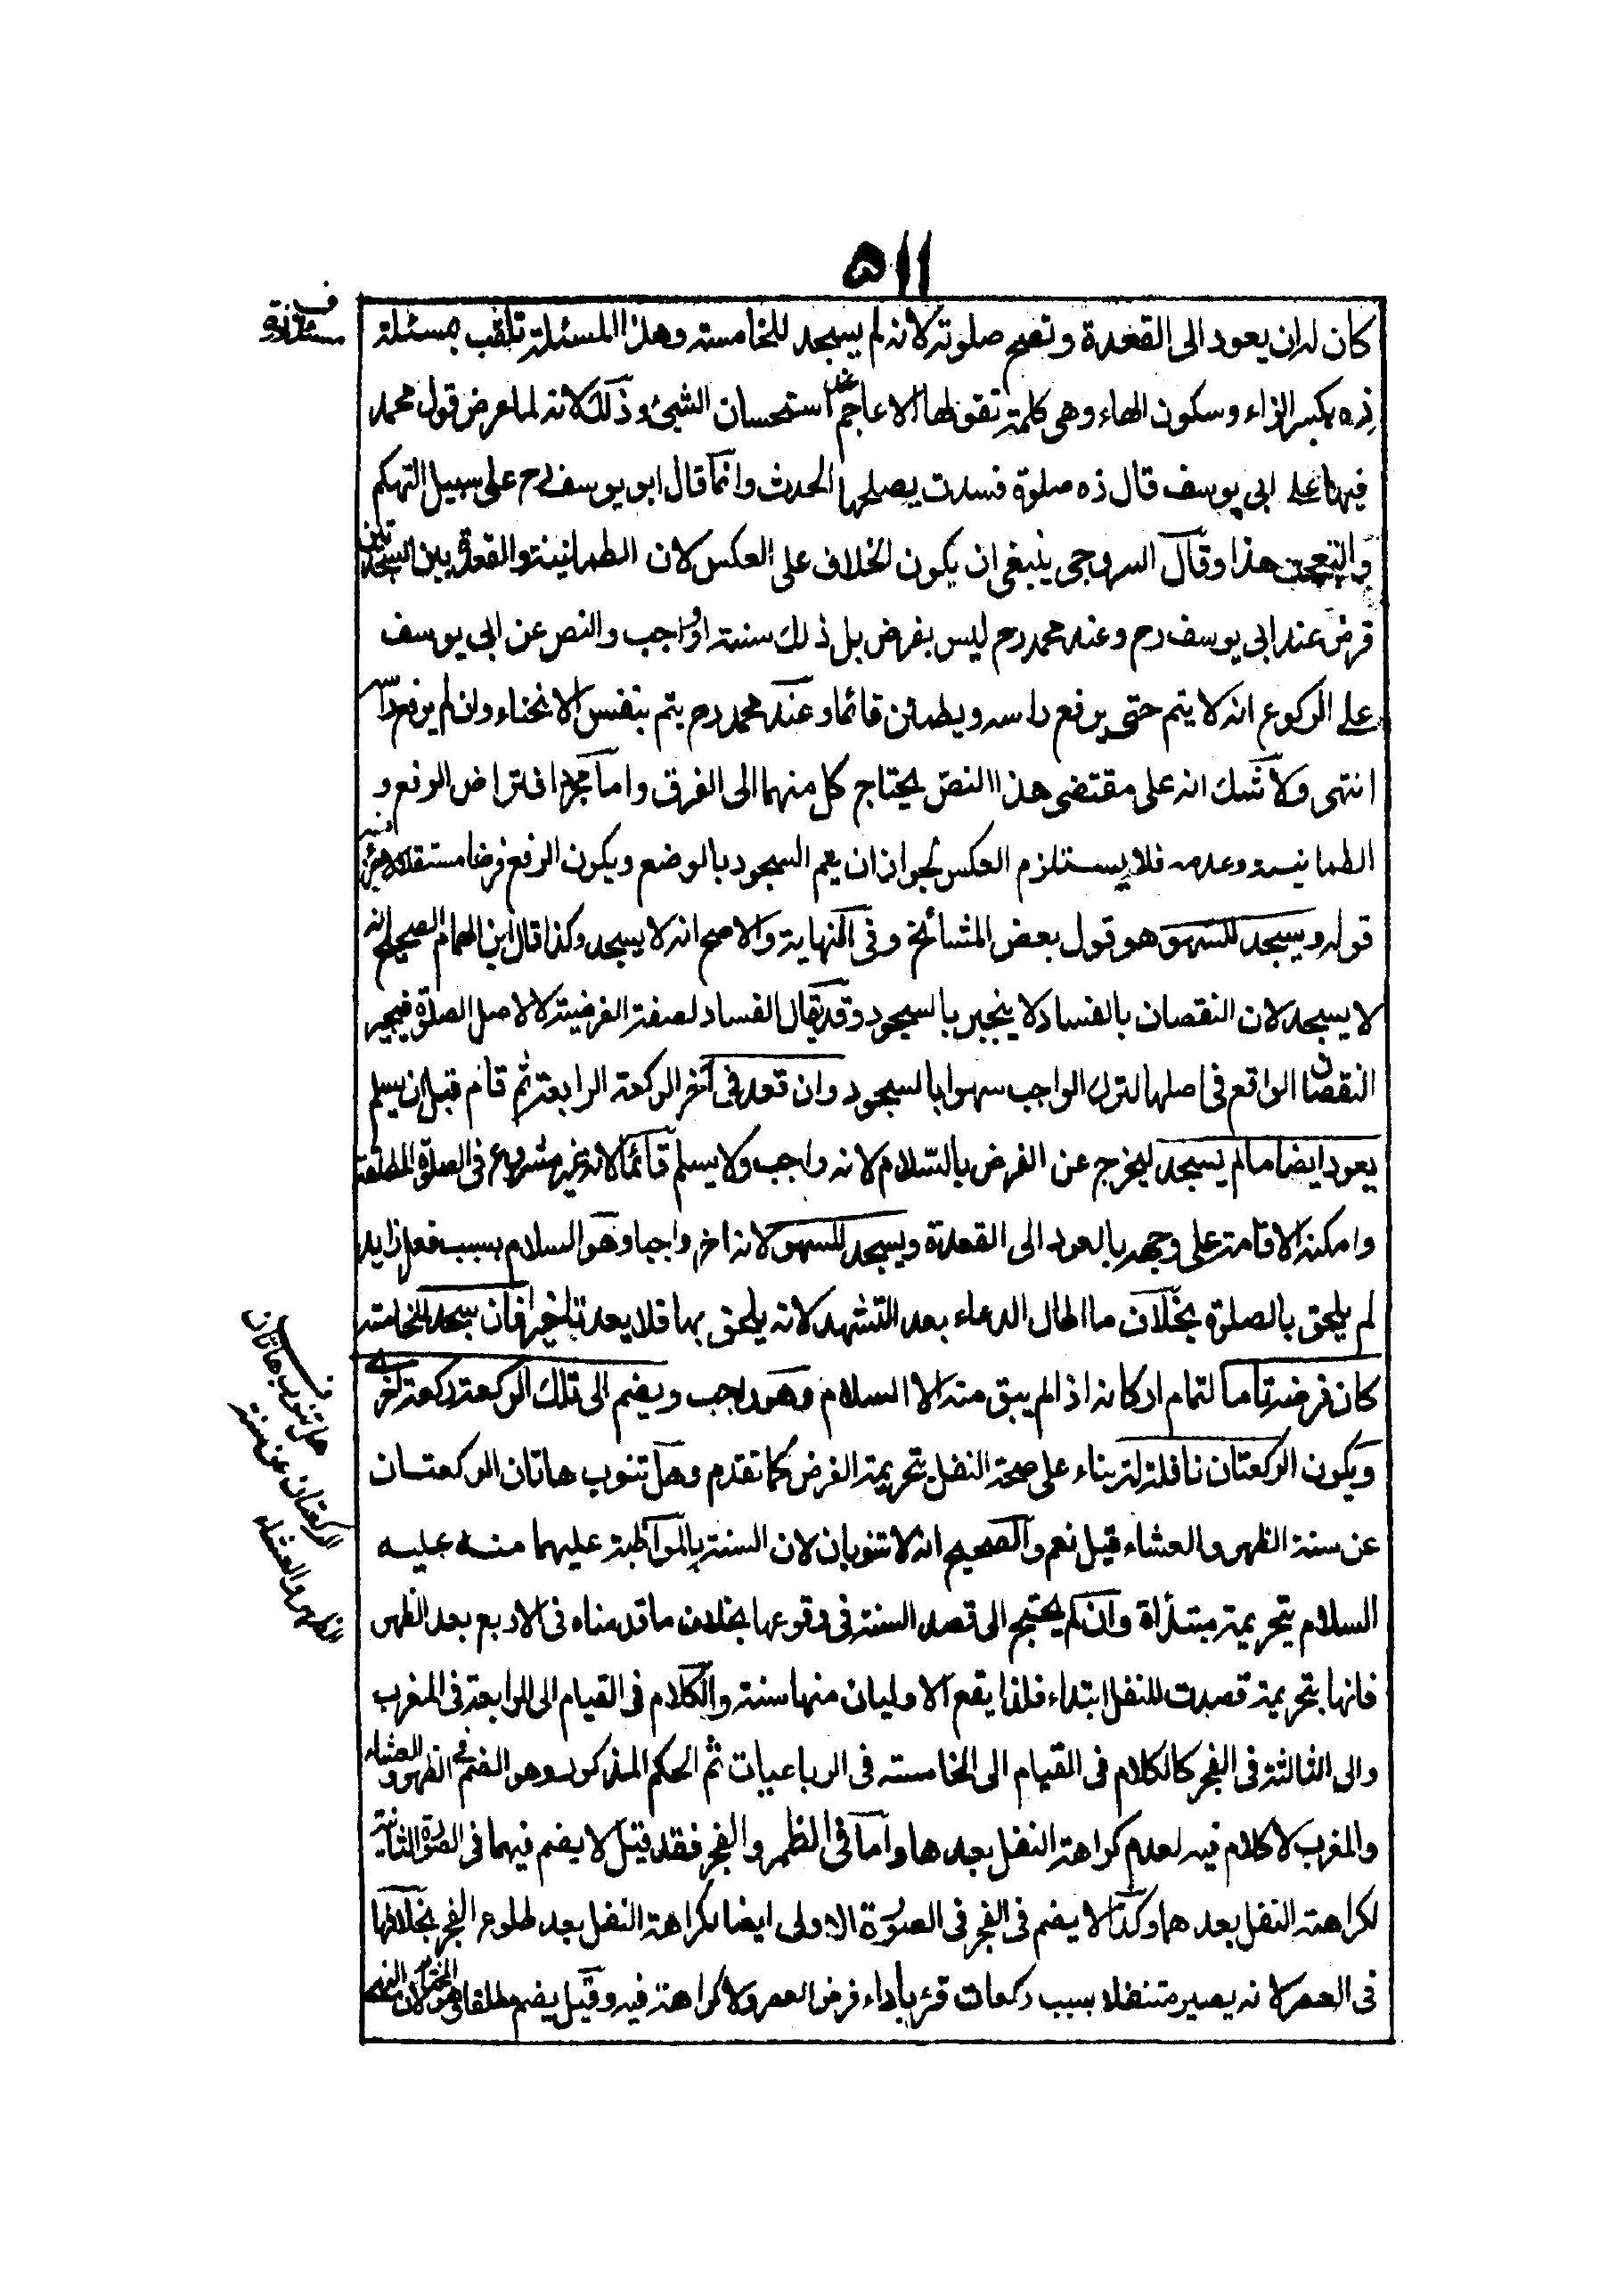 ٥١١
ف
كان له ان يعود الى القعدة وتصح صلوته لانه لم يسجد للخامسة وهذا المسئلة تلقب بمسئلة
زه بكسر الزاء وسكون الهاء وهى كلمة تقولها الاعاجم عند استحسان الشيئ وذلك لانه لما عرض قول محمد
فيها على ابى يوسف قال زه صلوة فسدت يصلحها الحدث وانما قال ابو يوسف رح على سبيل التهكم
والتعجب هذا وقال السروجى ينبغى ان يكون الخلاف على العكس لان الطمانينة والقعدة بين السجدتين
فرض عند ابى يوسف رح وعند محمد رح ليس بفرض بل ذلك سنة او واجب والنص عن ابى يوسف
على الركوع انه لا يتم حتى يرفع راسه ويطمئن قائما وعند محمد رح يتم بنفس الانحناء وان لم يرفع راسه
انتهى ولا شك انه على مقتضى هذا النص يحتاج كل منهما الى الفرق واما مجرد افتراض الرفع و
الطمانينة وعدمه فلا يستلزم العكس لجواز ان يتم السجود بالوضع ويكون الرفع فرضا مستقلا
قوله ويسجد للسهو هو قول بعض المشائخ وفى النهاية والاصح انه لا يسجد وكذا قال ابن الهمام الصحيح انه
لا يسجد لان النقصان بالفساد لا ينجبر بالسجود وقد يقال الفساد لصفة الفرضية لا لاصل الصلوة فيجبر
النقصان الواقع فى اصلها لترك الواجب سهوا بالسجود وان قعد فى آخر الركعة الرابعة ثم قام قبل ان يسلم
يعود ايضا مالم يسجد ليخرج عن الفرض بالسلام لانه واجب ولا يسلم قائما لانه غير مشروع فى الصلوة المطلقة
وامكنه الاقامة على وجهه بالعود الى القعدة ويسجد للسهو لانه اخر واجبا وهو السلام بسبب فعل زايد
لم يلحق بالصلوة بخلاف ما اطال الدعاء بعد التشهد لانه يلحق بها فلا يعد تاخيرا فان سجد للخامسة
كان فرضه تاما لتمام اركانه اذ لم يبق منه الا السلام وهو واجب ويضم الى تلك الركعة ركعة اخرى
ويكون الركعتان نافلة له بناء على صحة النفل بتحريمة الفرض كما تقدم وهل تنوب هاتان الركعتان
عن سنة الظهر والعشاء قيل نعم والصحيح انه لا تنوبان لان السنة بالمواظبة عليهما منه عليه
السلام بتحريمة مبتدأة وان لم يحتج الى قصد السنة فى وقوعها بخلاف ما قدمناه فى الاربع بعد الظهر
فانها بتحريمة قصدت للنفل ابتداء فلذا يقع الاوليان منها سنة والكلام فى القيام الى الرابعة فى المغرب
والى الثالثة فى الفجر كالكلام فى القيام الى الخامسة فى الرباعيات ثم الحكم المذكور وهو الضم فى الظهر والعشاء
والمغرب لا كلام فيه لعدم كراهة النفل بعدها واما فى الظهر والفجر فقد قيل لا يضم فيهما فى الصورة الثانية
لكراهة النفل بعدهما وكذا لا يضم فى الفجر فى الصورة الاولى ايضا لكراهة النفل بعد طلوع الفجر بخلافها
فى العصر لانه يصير متنفلا بسبب ركعات قبل اداء فرض العصر ولا كراهة فيه وقيل يضم مطلقا وهو المختار لان النفل
ف
هل تنوب هاتان
الركعتان عن سنة
الظهر والعشاء